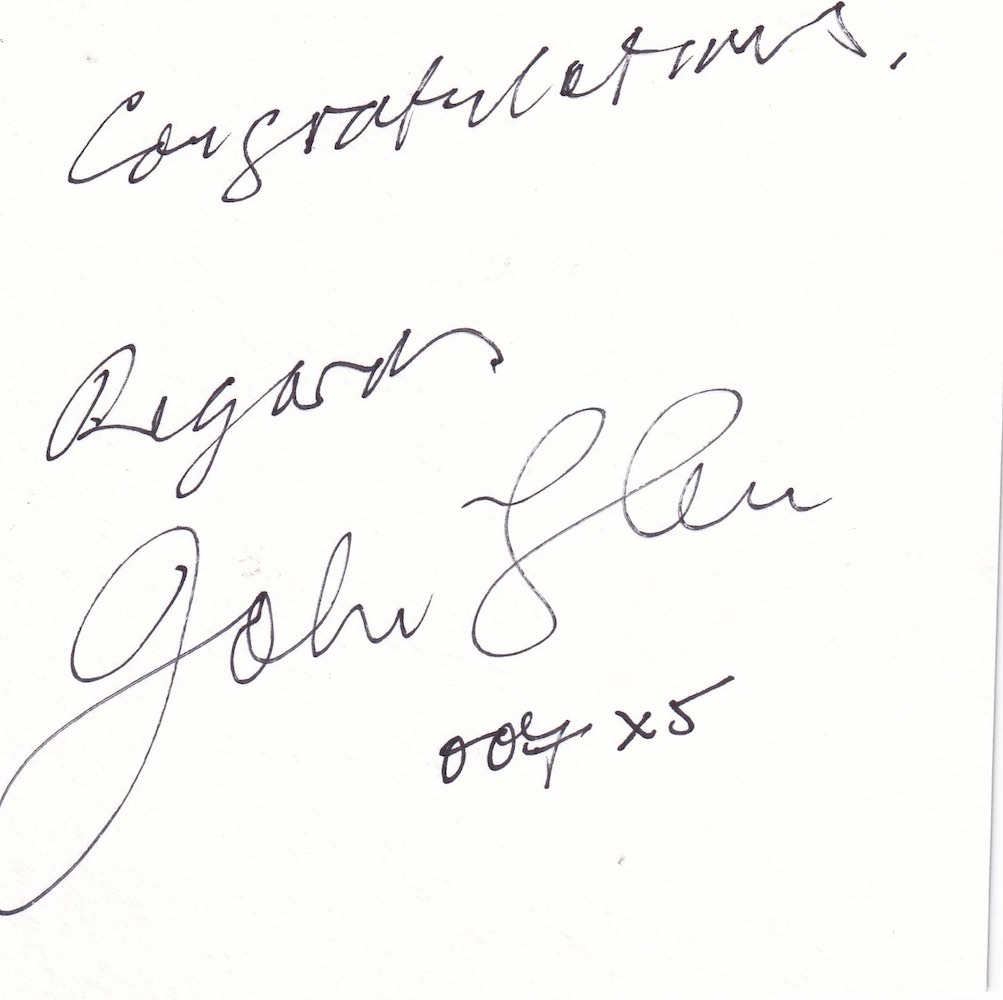 Congratulations.
Regards
John Glen
007 x5